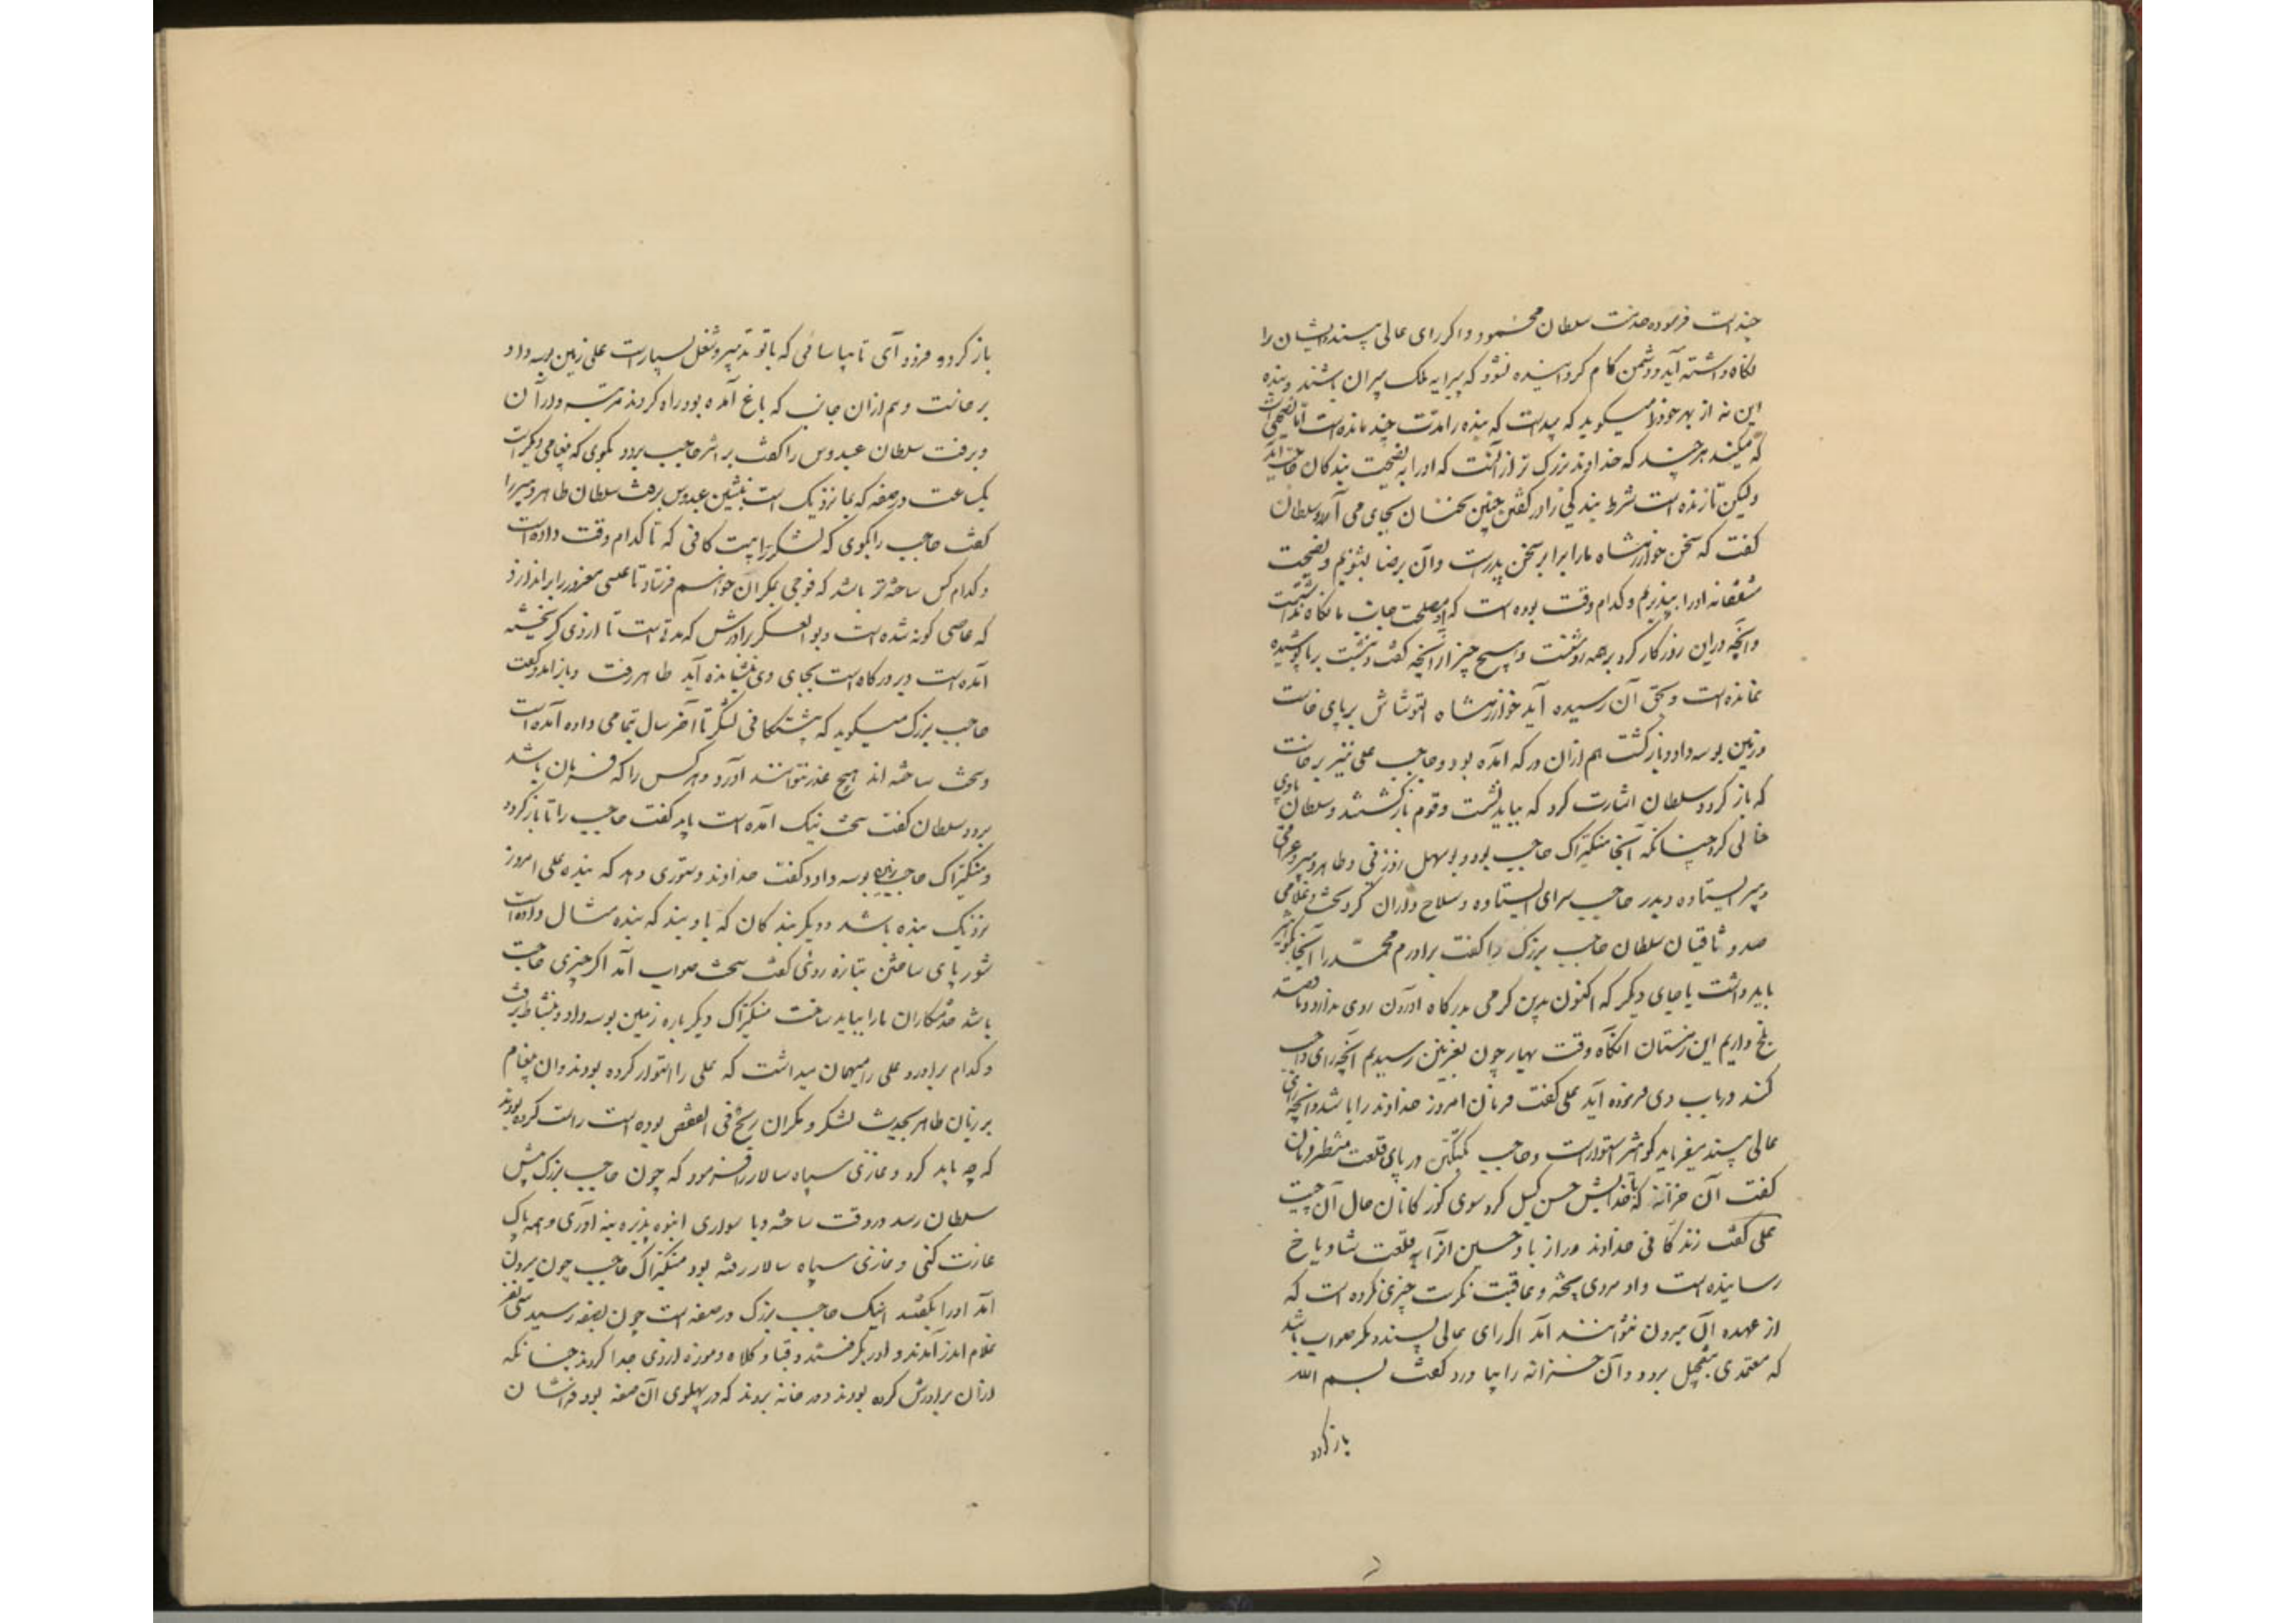 چند است فرموده حضرت سلطان محمود و اکر رای عالی پسند ایشان را
نکاه داشته آید و دشمن کام کردانیده نشود که پیرایه ملک پیران باشند و بنده
این نه از بهر خود را میکوید که پیداست که بنده را مدت چند مانده است اما نصیحتی است
که میکند هرچند که خداوند بزرک تر از آنست که او را به نصیحت بندکان حاجت آید
ولیکن تا زنده است شرط بندکی را در کفتن چنین سخنان بجای می آرد و سلطان
کفت که سخن خوارزمشاه ما را برابر سخن پدرست و آن برضا بشنویم و نصیحت
مشفقانه او را بپذیریم و کدام وقت بوده است که او مصلحت جانب ما نکاه نداشتست
و آنچه دراین روزکار کرد بر همه روشنست و هیچ چیز از آنچه کفت و نبشت بر ما پوشیده
نمانده است و بحق آن رسیده آید خوارزمشاه التونتاش بر پای خاست
و زمین بوسه داد و بازکشت هم ازان در که آمده بود و حاجب علی نیز برخاست
که باز کردد سلطان اشارت کرد که بباید نشست و قوم بازکشتند و سلطان با وی
خالی کرد چنانکه آنجا منکیتراک حاجب بود و بوسهل زوزنی و طاهر دبیر و عراقی
دبیر ایستاده و بدر حاجب سرای ایستاده و سلاح داران کرد تخت و غلامی
صد وثاقیان سلطان حاجب بزرک را کفت برادرم محمد را آنجا بکوهشیر
باید داشت یا جای دیکر که اکنون بدین کرمی بدرکاه آوردن روی ندارد و ما قصد
بلخ داریم این زمستان آنکاه وقت بهار چون بغزنین رسیدیم آنچه رای واجب
کند در باب وی فرموده آید علی کفت فرمان امروز خداوند را باشد و آنچه رای
عالی پسند میفرماید کوهشیر استوارست و حاجب بکتکین در پای قلعت منتظر فرمان
کفت آن خزانه که با کدخدایش حسن کسیل کرد سوی کوزکانان حال آن چیست
علی کفت زندکانی خداوند دراز باد حسین آنرا به قلعت شادیاخ
رسانیده است و او مردی پخته و عاقبت نکرست چیزی نکرده است که
از عهده آن بیرون نتوانند آمد اکر رای عالی پسند و مکر صواب باشد
که معتمدی بتعجیل برود و آن خزانه را بیاورد کفت بسم الله
باز کرد
باز کرد و فرود آی تا بیاسائی که با تو تدبیر و شغل بسیارست علی زمین بوسه داد
برخاست و هم ازان جانب که باغ آمده بود راه کردند مرتبه داران
و برفت سلطان عبدوس را کفت بر اثر حاجب برو و بکوی که پیغامی دیکرست
یک ساعت در صفه که بما نزدیک است بنشین عبدوس برفت سلطان طاهر دبیر را
کفت حاجب را بکوی که لشکر را بیستکانی که تا کدام وقت داده است
و کدام کس ساخته تر باشد که فوجی بمکران خواهیم فرستاد تا عیسی مغرور را براندازد
که عاصی کونه شده است و بوالعسکر برادرش که مدتی است تا از وی کریخته
آمده است و بر درکاه است بجای وی نشانده آید طاهر رفت و باز آمد و کفت
حاجب بزرک میکوید که بیستکانی لشکر تا آخر سال بتمامی داده آمده است
و سخت ساخته اند هیچ عذر نتوانند آورد و هر کس را که فرمان باشد
برود سلطان کفت سخت نیک آمده است باید کفت حاجب را تا باز کردد
و منکیتراک حاجب زمین بوسه داد و کفت خداوند دستوری دهد که بنده علی امروز
نزدیک بنده باشد و دیکر بندکان که با ویند که بنده مثال داده است
شوربای ساختن بتازه روئی کفت سخت صواب آمد اکر چیزی حاجت
باشد خدمتکاران ما را بباید ساخت منکیتراک دیکر باره زمین بوسه داد و بنشاط برفت
و کدام برادر و علی را میهمان میداشت که علی را استوار کرده بودند و آن پیغام
بر زبان طاهر بحدیث لشکر و مکران ریح فی القفص بوده است راست کرده بودند
که چه باید کرد و غازی سپاه سالار را فرمود که چون حاجب بزرک پیش
سلطان رسد در وقت ساخته و با سواری انبوه پذیره بنه او روی و همه پاک
غارت کنی و غازی سپاه سالار رفته بود منکیتراک حاجب چون بیرون
آمد او را بکفتند اینک حاجب بزرک در صفه است چون بصفه رسید سی نفر
غلام اندر آمدند و او را بکرفتند و قبا و کلاه و موزه از وی جدا کردند چنانکه
ازان برادرش کرده بودند و در خانه بردند که در پهلوی آن صفه بود فراشان